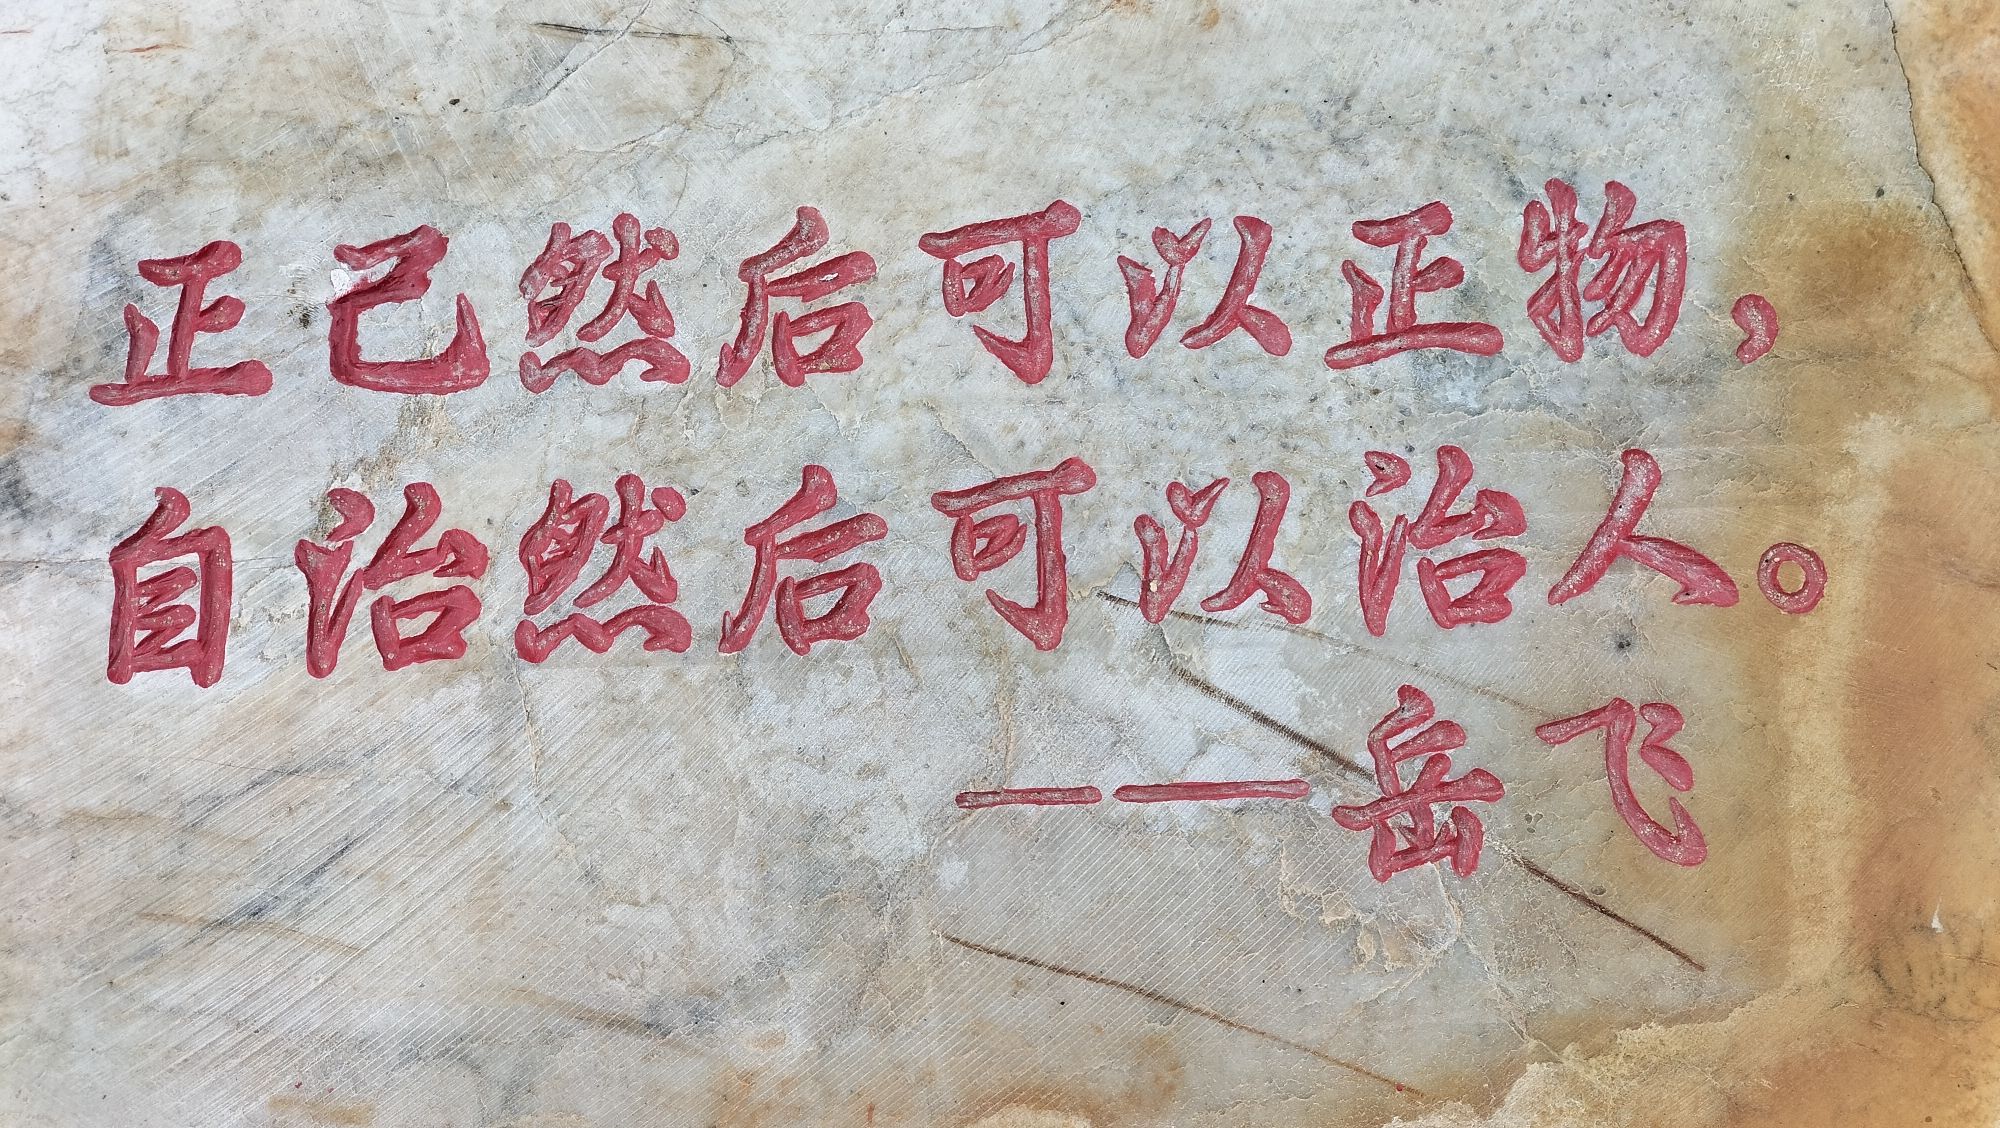 正己然后可以正物，
自治然后可以治人。
——岳飞